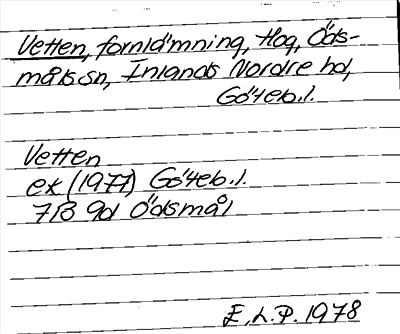 Vetten, fornlämning, Hog, Öds-
måls sn, Inlands Nordre hd,
Göteb. l.
Vetten
ek (1977) Göteb. l.
7B 9d Ödsmål
E.L.P. 1978